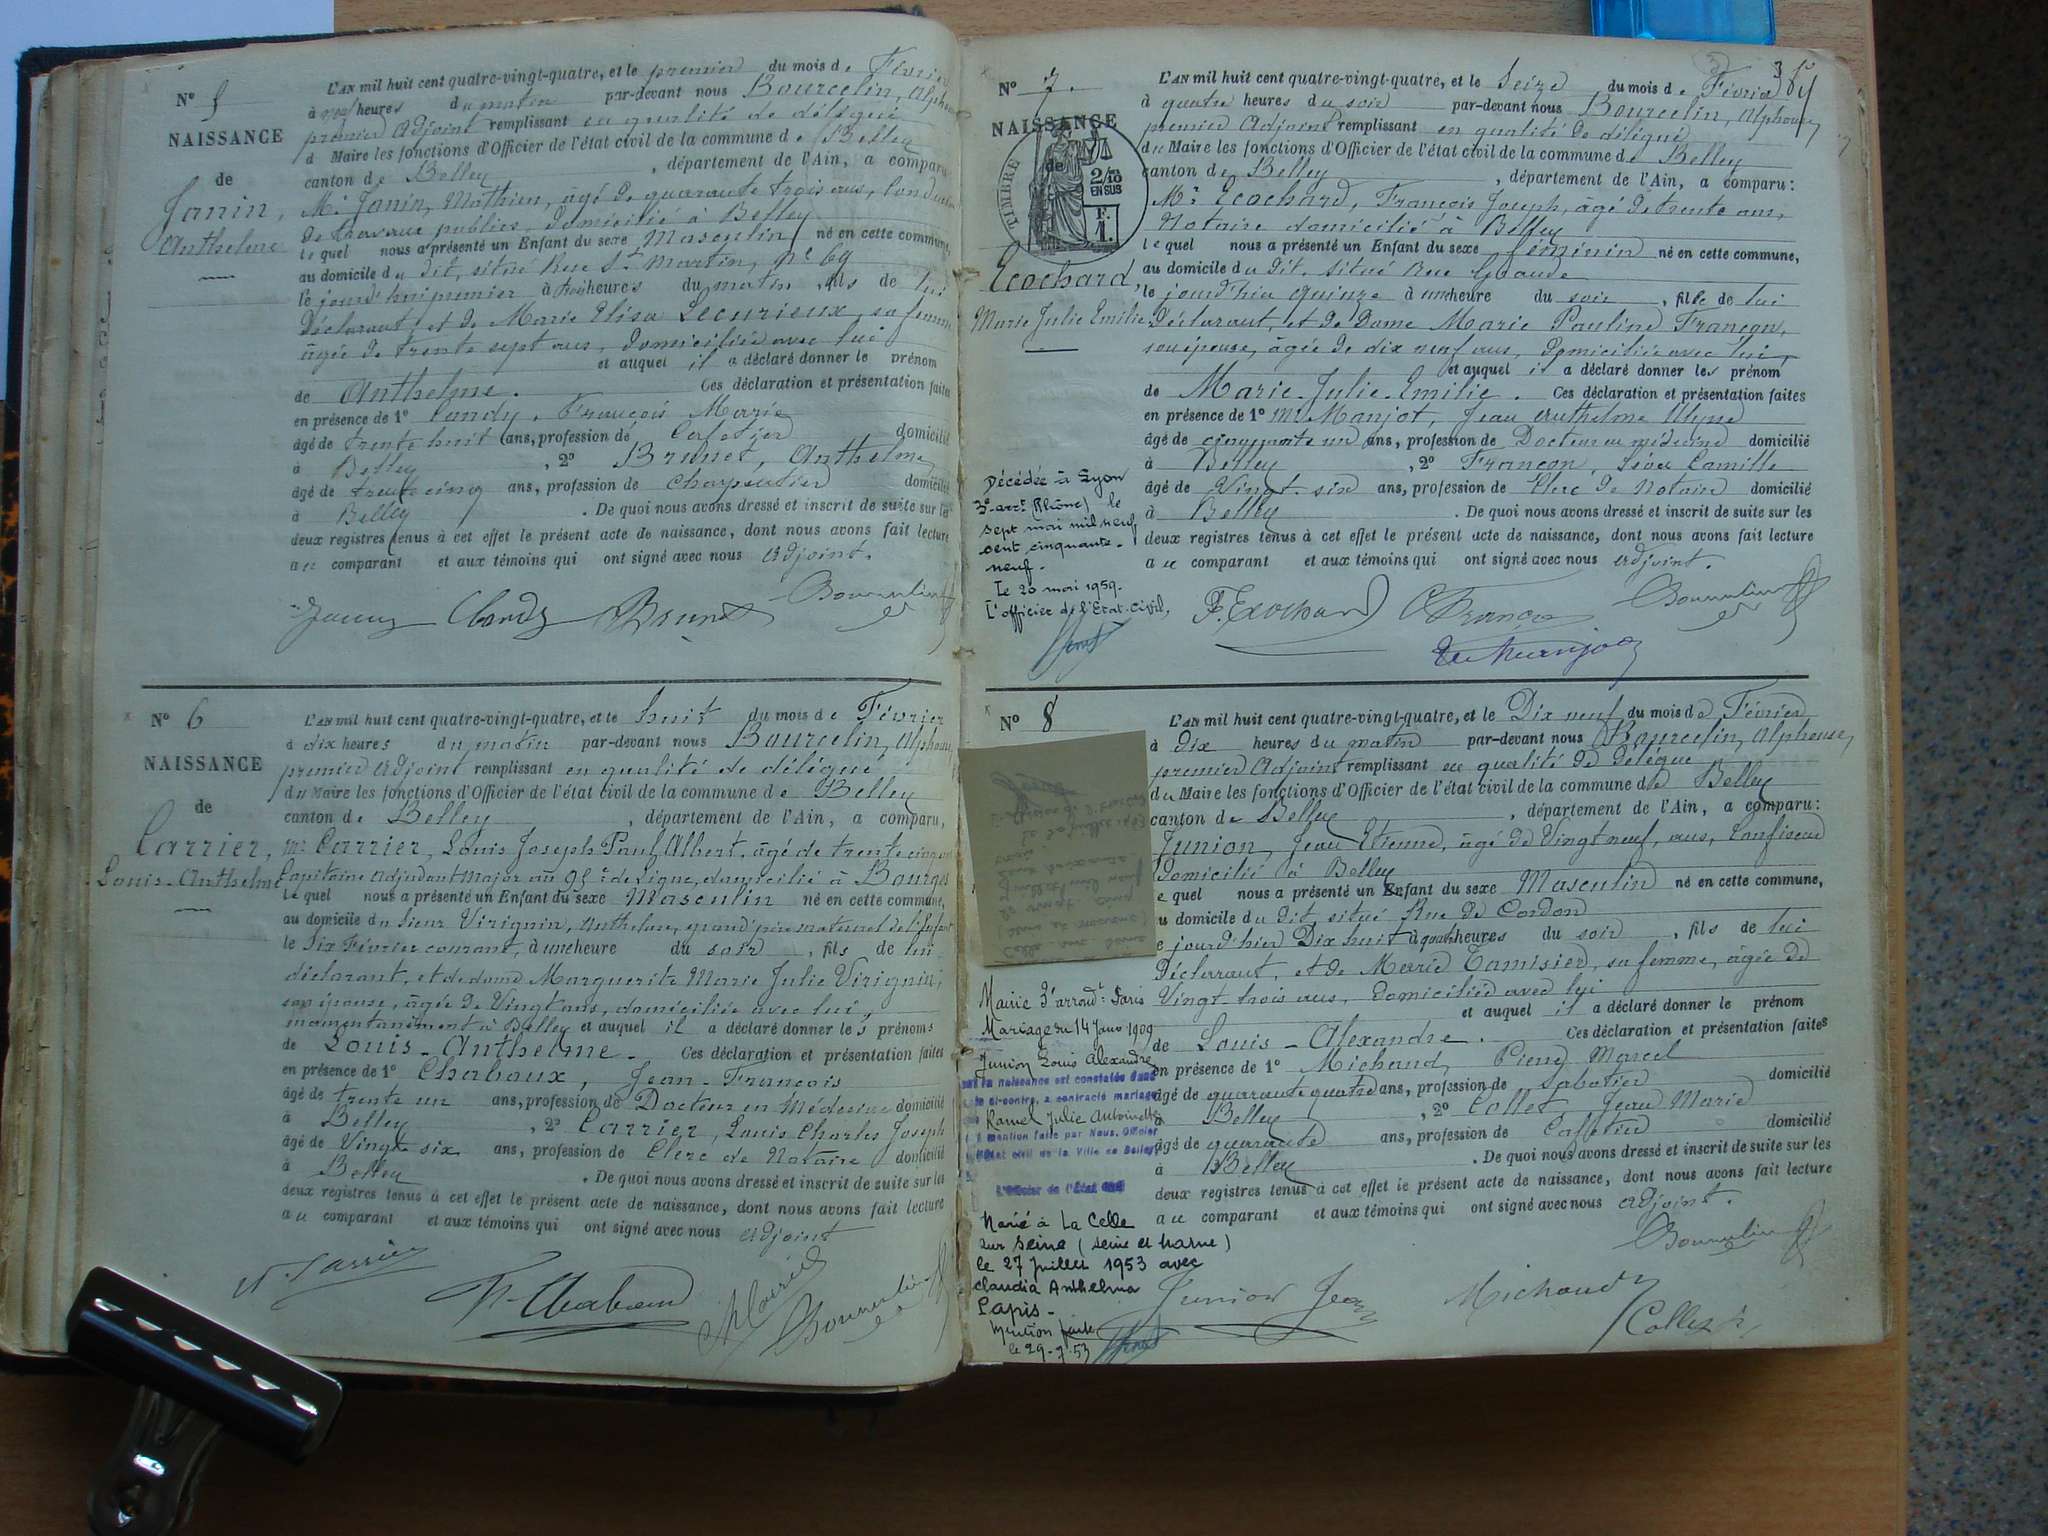 N° 5
NAISSANCE
de
Janin,
Anthelme
L'AN mil huit cent quatre-vingt-quatre, et le premier du mois de Février
à heures du matin par-devant nous Bourcelin, Alphonse
premier Adjoint remplissant en qualité de délégué
d Maire les fonctions d'Officier de l'état civil de la commune de Belley
canton de Belley, département de l'Ain, a comparu
Mr Janin, Mathieu, âgé de quarante trois ans, conducteur
de travaux publics, domicilié à Belley
lequel nous a présenté un Enfant du sexe Masculin né en cette commune,
au domicile du dit, situé Rue St Martin, n° 69
le jourd'hui premier à trois heures du matin, fils de lui
Déclarant, et de Marie Elisa Lecurieux, sa femme
âgée de trente sept ans, domiciliée avec lui
et auquel il a déclaré donner le prénom
de Anthelme. Ces déclaration et présentation faites
en présence de 1° Candy, François Marie
âgé de trente huit ans, profession de Cafetier domicilié
à Belley, 2° Brunet, Anthelme
âgé de trente cinq ans, profession de charpentier domicilié
à Belley. De quoi nous avons dressé et inscrit de suite sur les
deux registres tenus à cet effet le présent acte de naissance, dont nous avons fait lecture
au comparant et aux témoins qui ont signé avec nous adjoint.
Janin Candy Brunet Bourcelin
N° 6
NAISSANCE
de
Carrier,
Louis-Anthelme
L'AN mil huit cent quatre-vingt-quatre, et le huit du mois de Février
à dix heures du matin par-devant nous Bourcelin, Alphonse
premier adjoint remplissant en qualité de délégué
du Maire les fonctions d'Officier de l'état civil de la commune de Belley
canton de Belley, département de l'Ain, a comparu,
Mr Carrier, Louis Joseph Paul Albert, âgé de trente cinq ans
Capitaine Adjudant Major au 95e de Ligne, domicilié à Bourges
lequel nous a présenté un Enfant du sexe Masculin né en cette commune,
au domicile du sieur Virignin, Anthelme, grand père maternel de l'Enfant
le six Février courant, à une heure du soir, fils de lui
déclarant, et de dame Marguerite Marie Julie Virignin,
son épouse, âgée de Vingt ans, domiciliée avec lui,
momentanément à Belley et auquel il a déclaré donner les prénoms
de Louis-Anthelme. Ces déclaration et présentation faites
en présence de 1° Chaboux, Jean-François
âgé de trente un ans, profession de Docteur en Médecine domicilié
à Belley, 2° Carrier, Louis Charles Joseph
âgé de Vingt six ans, profession de Clerc de Notaire domicilié
à Belley. De quoi nous avons dressé et inscrit de suite sur les
deux registres tenus à cet effet le présent acte de naissance, dont nous avons fait lecture
au comparant et aux témoins qui ont signé avec nous adjoint
A. Carrier Chaboux Carrier Bourcelin
3
N° 7.
NAISSANCE
de
TIMBRE
2/10
EN SUS
F.
1.
Ecochard,
Marie Julie Emilie
L'AN mil huit cent quatre-vingt-quatre, et le Seize du mois de Février
à quatre heures du soir par-devant nous Bourcelin, Alphonse,
premier Adjoint remplissant en qualité de délégué
du Maire les fonctions d'Officier de l'état civil de la commune de Belley
canton de Belley, département de l'Ain, a comparu:
Mr Ecochard, François Joseph, âgé de trente ans,
Notaire domicilié à Belley
lequel nous a présenté un Enfant du sexe féminin né en cette commune,
au domicile du dit. situé Rue Grande
le jourd'hier quinze à une heure du soir, fille de lui
Déclarant, et de Dame Marie Pauline Françon,
son épouse, âgée de dix neuf ans, domiciliée avec lui,
et auquel il a déclaré donner les prénom
de Marie-Julie-Emilie. Ces déclaration et présentation faites
en présence de 1° Mr Manjot, Jean Anthelme Ulysse
âgé de cinquante un ans, profession de Docteur en médecine domicilié
à Belley, 2° Françon, Séva Camille
âgé de Vingt-six ans, profession de Clerc de Notaire domicilié
à Belley. De quoi nous avons dressé et inscrit de suite sur les
deux registres tenus à cet effet le présent acte de naissance, dont nous avons fait lecture
au comparant et aux témoins qui ont signé avec nous adjoint.
F. Ecochard C Françon Bourcelin
Manjot
Décédée à Lyon
3e arrt (Rhône) le
sept mai mil neuf
cent cinquante-
neuf-
Le 20 mai 1959-
L'officier de l'Etat-civil,
N° 8
L'AN mil huit cent quatre-vingt-quatre, et le Dix neuf du mois de Février
à Dix heures du matin par-devant nous Bourcelin, Alphonse,
premier Adjoint remplissant en qualité de délégué
du Maire les fonctions d'Officier de l'état civil de la commune de Belley
canton de Belley, département de l'Ain, a comparu:
Junion, Jean Etienne, âgé de Vingt neuf, ans, Confiseur
Domicilié à Belley
lequel nous a présenté un Enfant du sexe Masculin né en cette commune,
au domicile du dit, situé Rue de Cordon
le jourd'hier Dix huit à quatre heures du soir, fils de lui
Déclarant, et de Marie Tamisier, sa femme, âgée de
Vingt trois ans, domiciliée avec lui
et auquel il a déclaré donner le prénom
de Louis-Alexandre. Ces déclaration et présentation faites
en présence de 1° Michaud, Pierre Marcel
âgé de quarante quatre ans, profession de sabotier domicilié
à Belley, 2° Collet Jean Marie
âgé de quarante ans, profession de Cafetier domicilié
à Belley. De quoi nous avons dressé et inscrit de suite sur les
deux registres tenus à cet effet le présent acte de naissance, dont nous avons fait lecture
au comparant et aux témoins qui ont signé avec nous adjoint.
Bourcelin
Junion Jean Michaud Collet
Mairie 3e arrondt Paris
Mariage du 14 Janv 1909
Junion Louis Alexandre
dont la naissance est constatée dans
acte ci-contre, a contracté mariage
Ramel Julie Antoinette
mention faite par Nous, Officier
l'Etat civil de la Ville de Belley
L'Officier de l'Etat Civil
Marié à La Celle
sur Seine (Seine et Marne)
le 27 juillet 1953 avec
Claudia Anthelma
Papis-
Mention faite
le 29-7-53